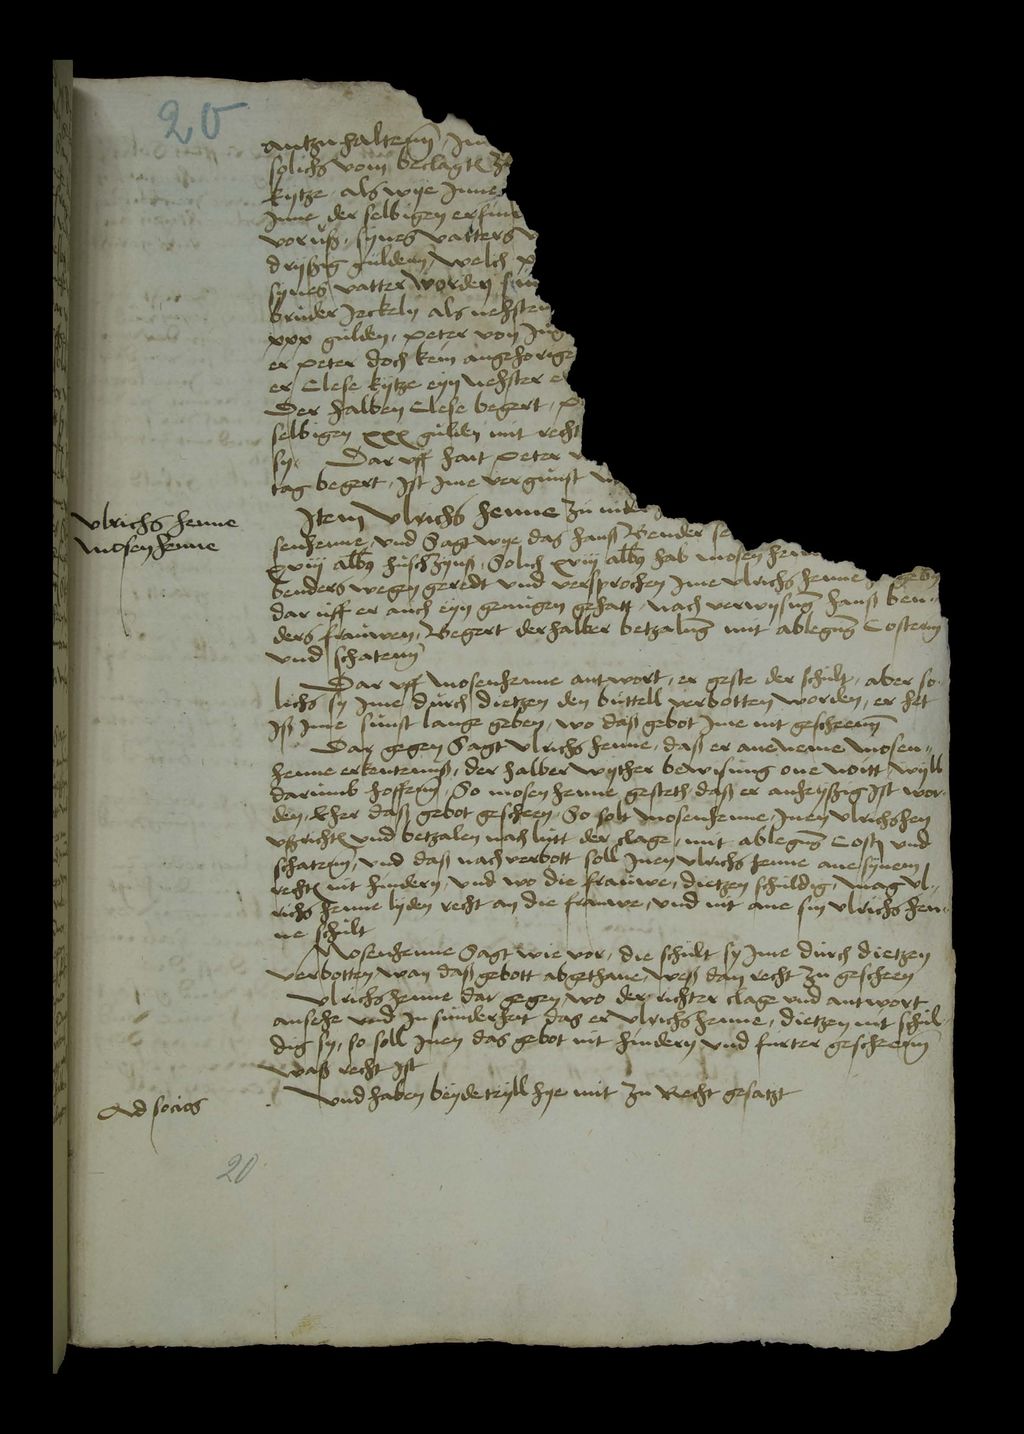 20
antzuhalten Im
solichs vom beclagten
kytze als wye Inne
Inne der selbigen
voruß synes vatters
dryßig gulden, welch
synes vatter worden
bruder Jeckeln als nehsten
xxx gulden, peter von
er peter doch kein angehorige
er Clese kytze eyn nehster
Der halben Clese begert,
selbigen xxx gulden mit recht
sy. Dar vff hait peter
tag begert, Ist Ime vergunst
Item Vlrichs henne zu
Vlrichs henne
mosenhenne
senhenne, vnd Sagt wye das hanß Bender
xviij albus Solich xviij albus hab mosen hen
benders wegen geredt vnd versprochen Ime vlrichs henne geben
dar uff er auch eyn genugen gehatt, nach verwysung hanß ben-
ders frauwen, Begert derhalber betzalung mit ablegung Costen
vnd schaten
Dar vff mosenhenne antwort, er geste der schult, aber so-
lichs sy Ime durch dietzen den buttell verbotten worden, er het
Iß Ime sunst lange geben, wo daß gebot Ime nit gescheen
Dar gegen Sagt vlrichs henne, daß er aneneme mosen-
henne erkenteniß, der halber wyther bewisung one noitt, wyll
darumb hoffen, So mosen henne gesteth, daß er anheyßig Ist wor-
den, Eher daß gebot gescheen, So solt mosenhenne, Inen vlrichshen
vßrichten vnd betzalen nach lutt der clage, mit ablegung Costen vnd
schaten, vnd daß nach verbott soll Inen vlrichs henne ane synem
rechten nit hindern, vnd wo die frauwe, dietzen schuldig, mag vl-
richs henne lyden recht an die frauwe, vnd nit ane sin vlrichs hen-
ne schult
Mosenhenne Sagt wie vor, die schult sy Ime durch dietzen
verbotten, wan daß gebott abgethane, weß dan recht zu gescheen
Vlrichshenne dar gegen wo der richter clage vnd antwort
ansehe vnd In sunderheit das er vlrichshenne, dietzen nit schul-
dig sy, so soll Inen das gebot nit hindern vnd furter gescheen
waß recht Ist
Vnd haben beyde teyll hye mit zu Recht gesatzt
Ad socios
20